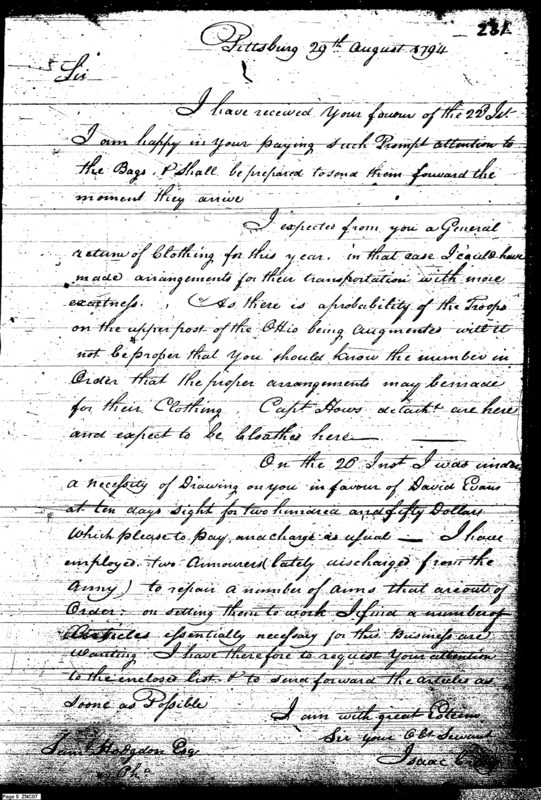 281
Pittsburg 29th August 1794
Sir
I have received your favour of the 22d Ist
I am happy in your paying such Prompt attention to
the Bags. & shall be prepared to send them forward the
moment they arrive
I expected from you a General
return of Clothing for this year. in that case I could have
made arrangements for their transportation with more
exactness. As there is a probability of the Troops
on the upper post of the Ohio being augmented will it
not be proper that you should know the number in
Order that the proper arrangements may be made
for their Clothing Capt Hows detacht are here
and expect to be Cloathed here
On the 26 Inst I was under
a necessity of Drawing on you in favour of David Evans
at ten days sight for two hundred and fifty Dollars
which please to pay, and charge as usual — I have
employed two Armourers (lately discharged from the
Army) to repair a number of arms that are out of
Order: on setting them to work I find a number of
Articles essentially necessary for this Business are
wanting I have therefore to request your attention
to the enclosed list. & to send forward the articles as
soone as Possible
I am with great Esteem
Sir your Obt Servant
Isaac Craig
Saml Hodgdon Esq
Pha
Page 5 ZNC07